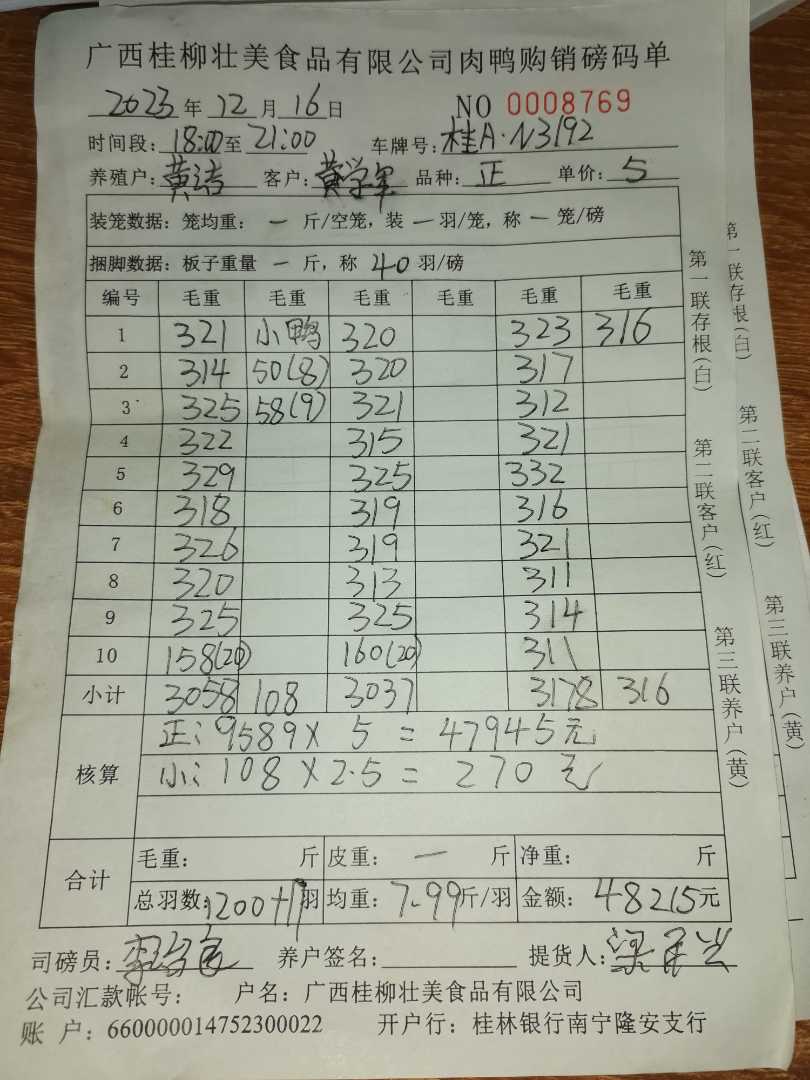 广西桂柳壮美食品有限公司肉鸭购销磅码单
2023年12月16日 NO 0008769
时间段:18:00至21:00 车牌号:桂A·N3192
养殖户:黄洁 客户:黄学军 品种:正 单价:5
装笼数据:笼均重: 一 斤/空笼,装 一 羽/笼,称 一 笼/磅
捆脚数据:板子重量 一 斤,称 40 羽/磅
编号 毛重 毛重 毛重 毛重 毛重 毛重
1 321 小鸭 320 323 316
2 314 50(8) 320 317
3 325 58(9) 321 312
4 322 315 321
5 329 325 332
6 318 319 316
7 326 319 321
8 320 313 311
9 325 325 314
10 158(20) 160(20) 311
小计 3058 108 3037 3178 316
核算
正:9589×5=47945元
小:108×2.5=270元
合计
毛重: 斤 皮重: 一 斤 净重: 斤
总羽数:1200+17羽 均重:7.99斤/羽 金额:48215元
司磅员: 养户签名: 提货人:
公司汇款帐号: 户名:广西桂柳壮美食品有限公司
账 户:660000014752300022 开户行:桂林银行南宁隆安支行
第一联存根(白) 第二联客户(红) 第三联养户(黄)
第一联存根(白) 第二联客户(红) 第三联养户(黄)